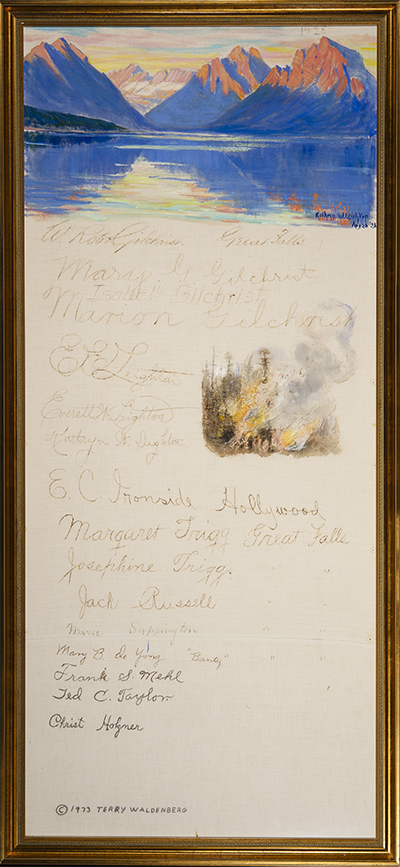 1925
Kathryn Leighton
W. Gilchrist Great Falls
Mary G Gilchrist
Isabelle Gilchrist
Marion Gilchrist
E F Leighton
Everett W. Leighton
Kathryn W. Leighton
E. C. Ironside Hollywood
Margaret Trigg Great Falls
Josephine Trigg. " "
Jack Russell " "
Sappington " "
Mary B. De Yong "Banty" " "
Frank S. Mehl
Ted C. Taylor
Christ Holzner
© 1973 TERRY WALDENBERG